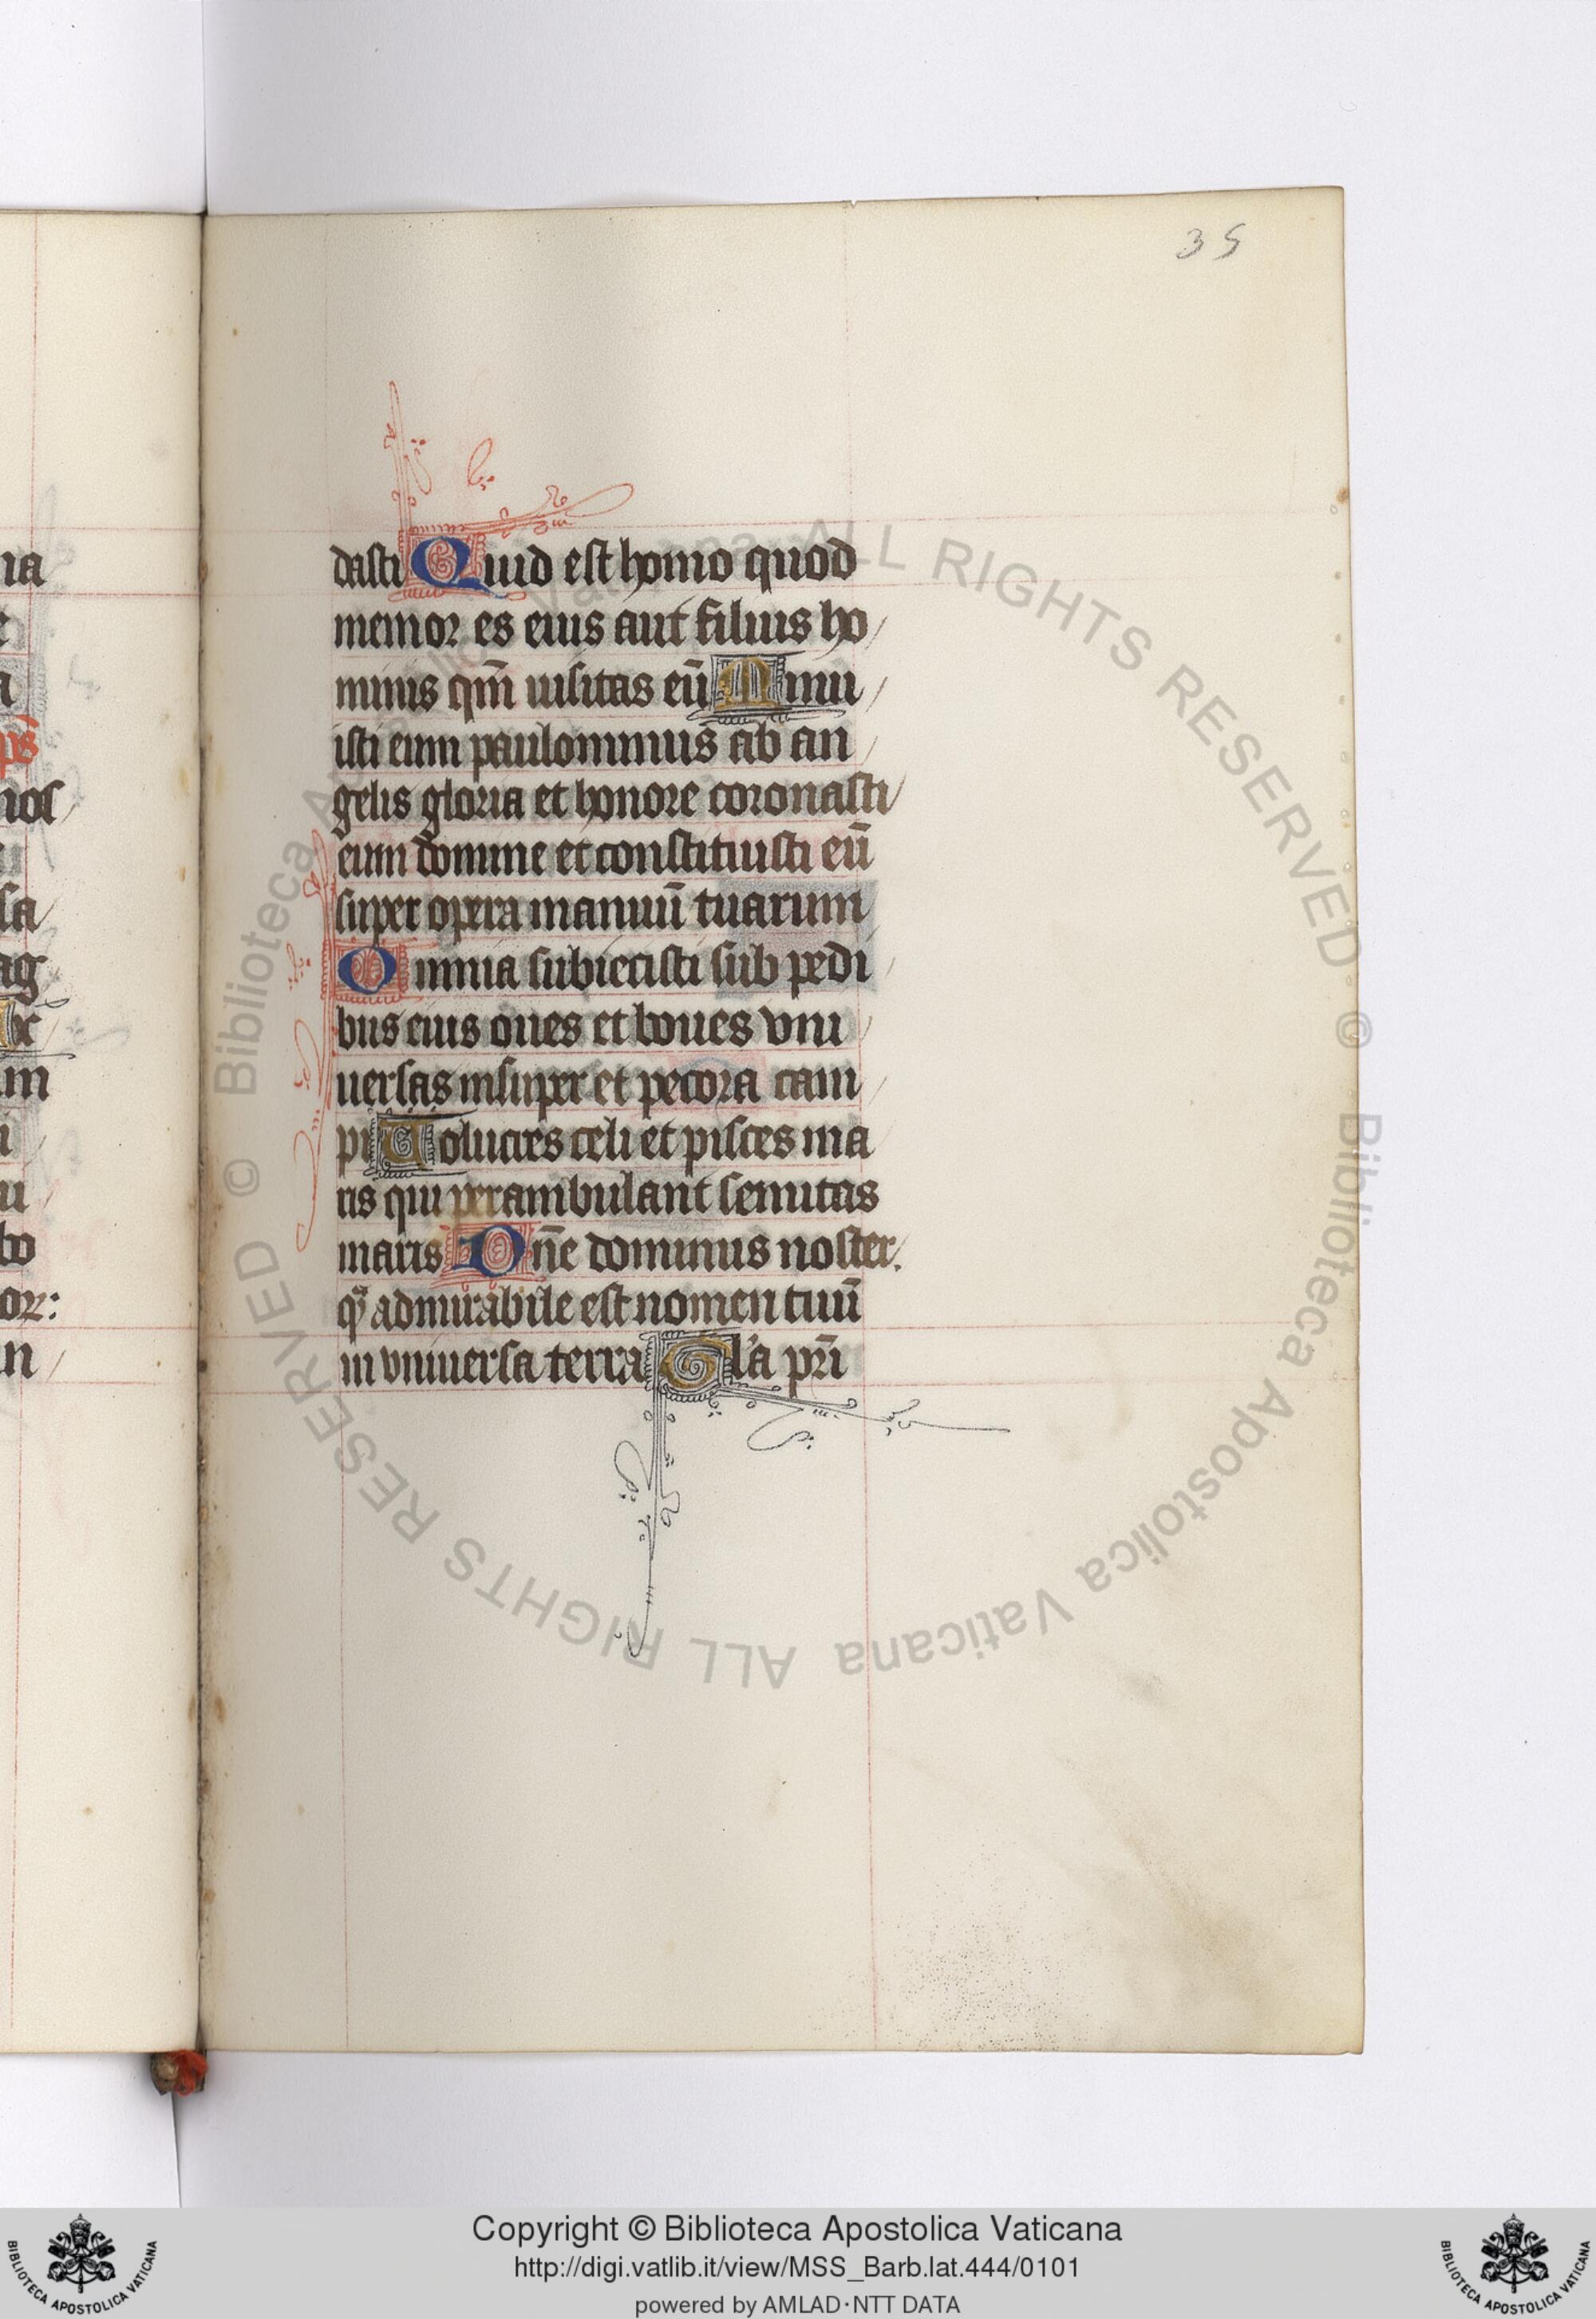 35
dasti Quid est homo quod
memor es eius aut filius ho
minis qm̄ uisitas eū Minu
isti eum paulominus ab an
gelis gloria et honore coronasti
eum domine et constituisti eū
super opera manuū tuarum
Omnia subiecisti sub pedi
bus eius oues et boues vni
uersas insuper et pecora cam
pi Uolucres celi et pisces ma
ris qui perambulant semitas
maris Dn̄e dominus noster.
q̃ admirabile est nomen tuū
in vniuersa terra Gl'a pr̄i
na
a
ps
nos
u
sa
ag
x
m
i
u
bo
or:
n
© Biblioteca Apostolica Vaticana ALL RIGHTS RESERVED
© Biblioteca Apostolica Vaticana ALL RIGHTS RESERVED
BIBLIOTECA APOSTOLICA VATICANA
Copyright © Biblioteca Apostolica Vaticana
http://digi.vatlib.it/view/MSS_Barb.lat.444/0101
powered by AMLAD·NTT DATA
BIBLIOTECA APOSTOLICA VATICANA